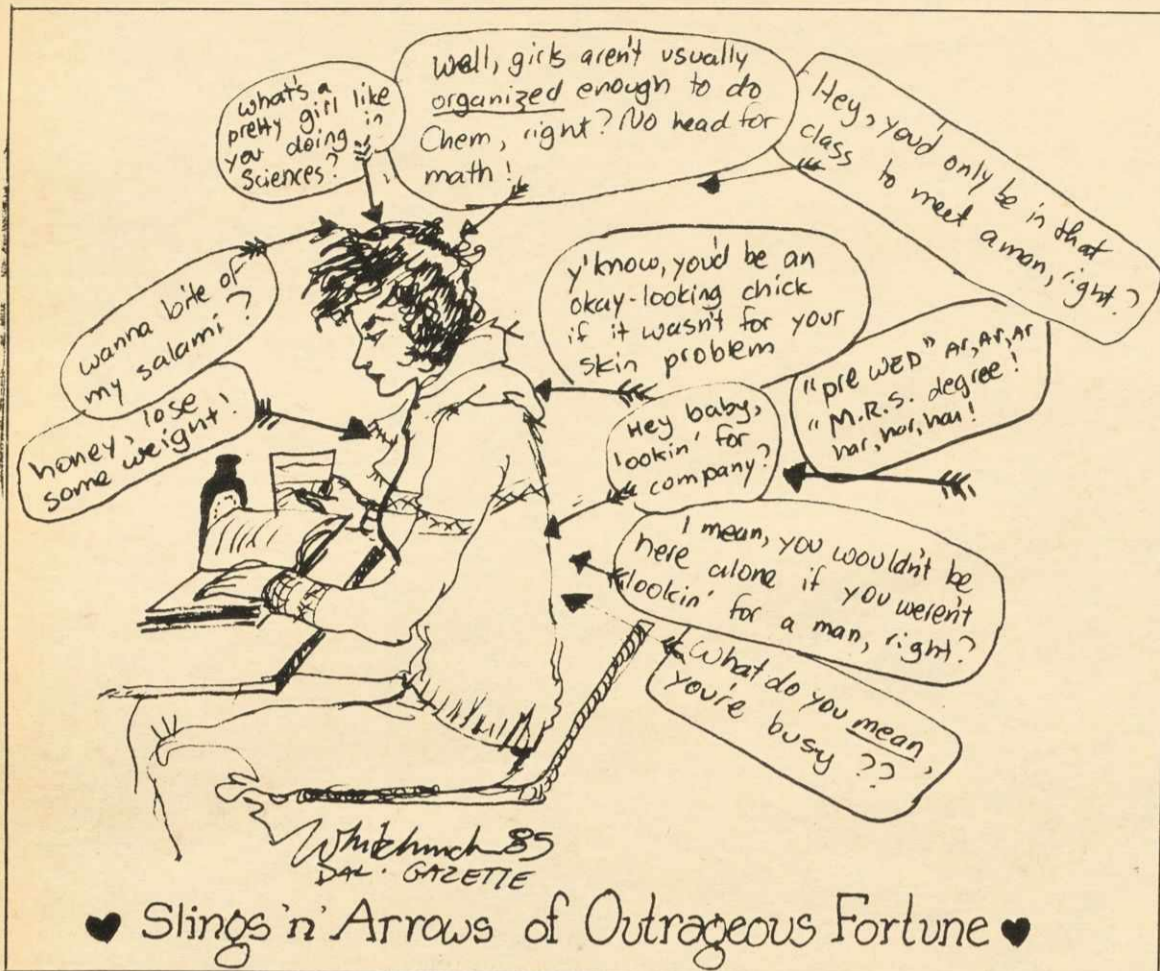 what's a
pretty girl like
you doing in
Sciences?
Well, girls aren't usually
organized enough to do
Chem, right? No head for
math!
Hey, you'd only be in that
class to meet a man, right?
wanna bite of
my salami?
honey, lose
some weight!
y'know, you'd be an
okay-looking chick
if it wasn't for your
skin problem
"pre WED" Ar, Ar, Ar
"M.R.S. degree!
har, har, har!
Hey baby,
lookin' for
company?
I mean, you wouldn't be
here alone if you weren't
lookin' for a man, right?
What do you mean,
you're busy ??
Whitchurch 85
DAL. GAZETTE
♥ Slings 'n' Arrows of Outrageous Fortune ♥